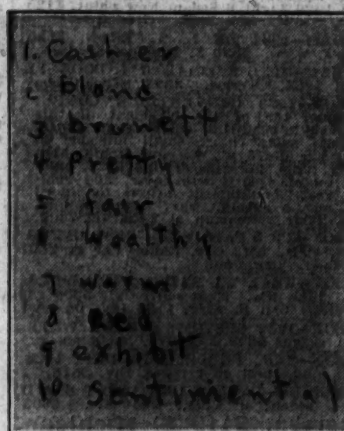 1. Cashier
2 blond
3 brunett
4 Pretty
5 fair
6 Wealthy
7 warm
8 Red
9 exhibit
10 Sentimental